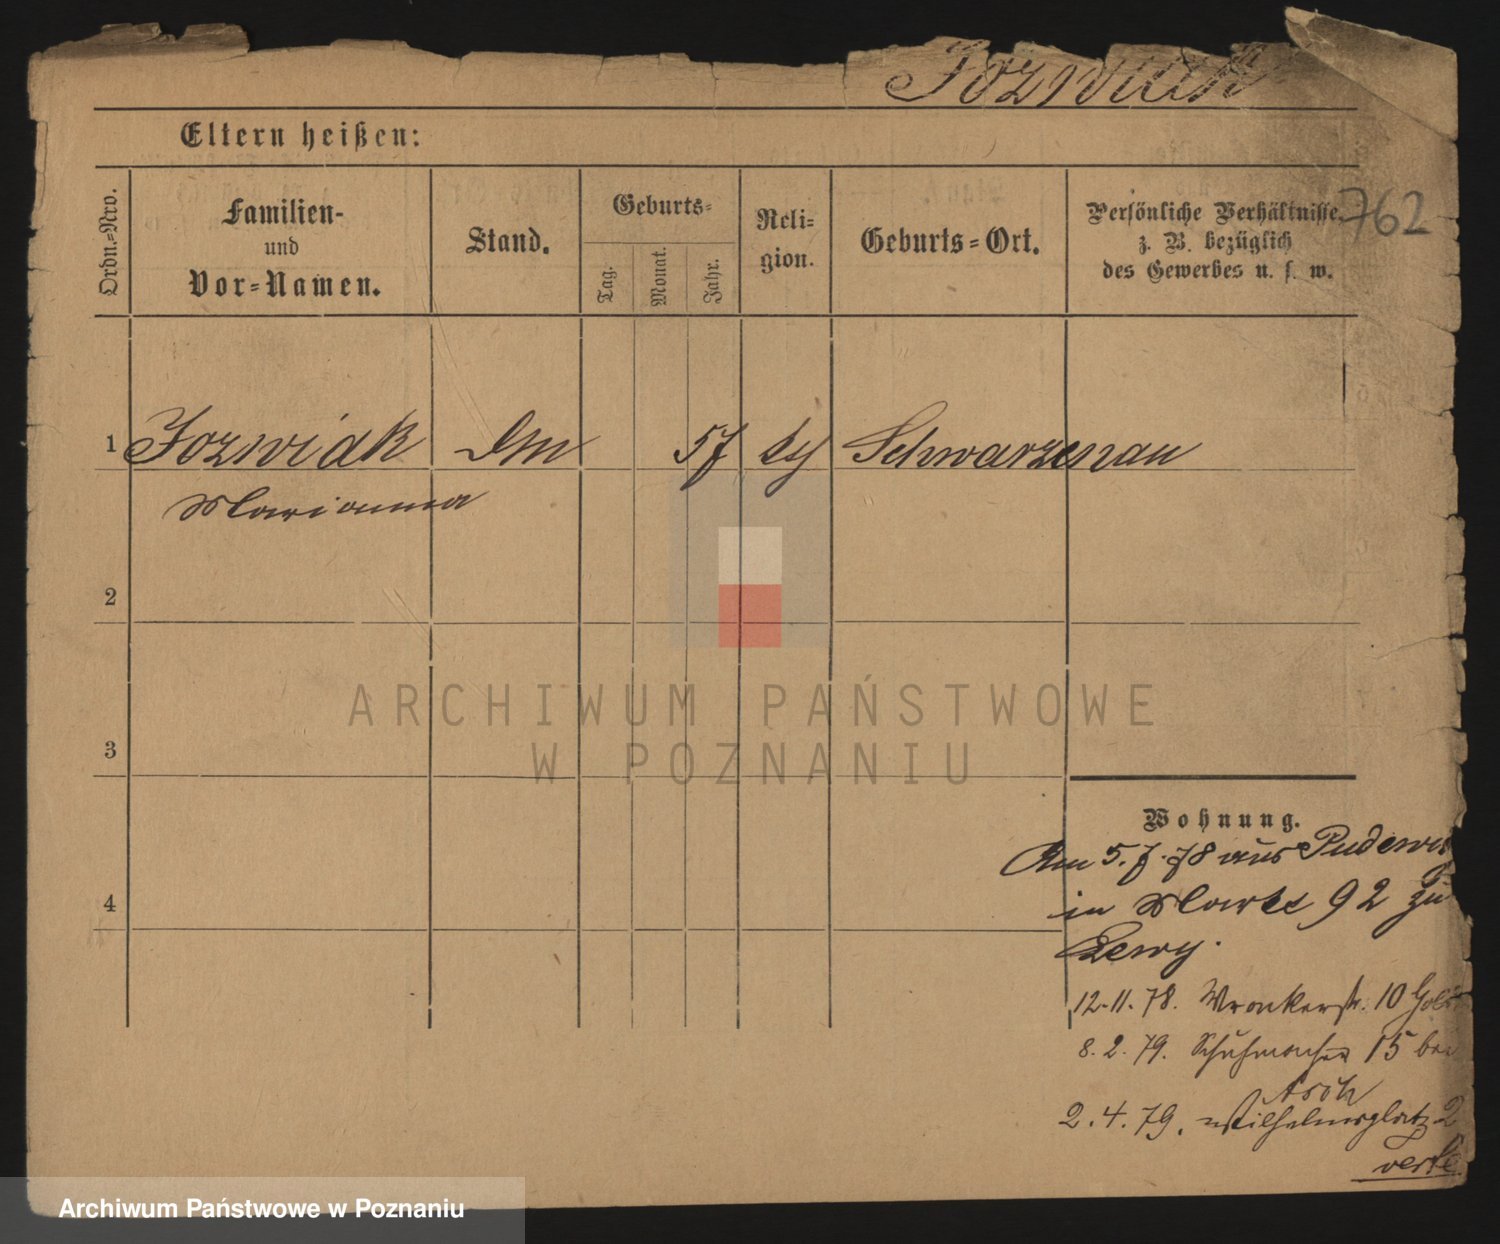 Jozwiak
Eltern heißen:
762
Ordn.-Nro.
Familien-
und
Vor-Namen.
Stand.
Geburts-
Tag.
Monat.
Jahr.
Reli-
gion.
Geburts-Ort.
Persönliche Verhältnisse
z. B. bezüglich
des Gewerbes u. s. w.
1 Jozwiak 57 Schwarzenau
Marianna
2
3
4
Wohnung.
Am 5.7.78 aus
in Markt 92 zu
Lewy.
12.11.78. Wronkerstr. 10
8.2.79. 15
2.4.79. Wilhelmsplatz 2
ARCHIWUM PAŃSTWOWE
W POZNANIU
Archiwum Państwowe w Poznaniu